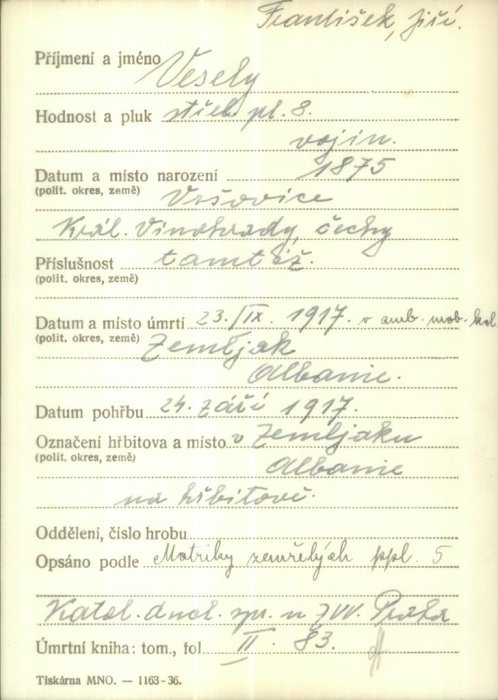 František, Jiří.
Příjmení a jméno Vesely
Hodnost a pluk střel. pl. 8.
vojín.
Datum a místo narození 1875
(polit. okres, země) Vršovice
Král. Vinohrady, Čechy
Příslušnost tamtéž.
(polit. okres, země)
Datum a místo úmrtí 23./IX. 1917. v amb. mob. kol
(polit. okres, země) Zemljak
Albanie.
Datum pohřbu 24. září 1917.
Označení hřbitova a místo v Zemljaku
(polit. okres, země) Albanie
na hřbitově.
Oddělení, číslo hrobu
Opsáno podle Matriky zemřelých ppl. 5
Katol. duch. spr. u ZVV. Praha
Úmrtní kniha: tom., fol II. 83.
Tiskárna MNO. — 1163-36.